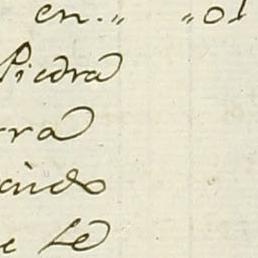 en.,, ,,01
Piedra
rra
ando
e Le